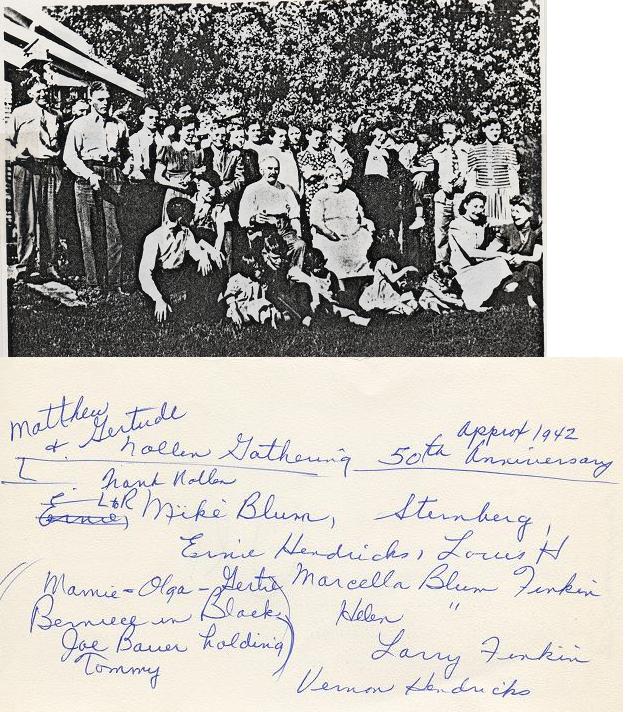 Matthew
& Gertude
Nollen Gathering 50th Anniversary
Approx 1942
Frank Nollen
E L to R
Ernie Mike Blum, Sternberg,
Ernie Hendricks, Louis H
Mamie - Olga - Gertie Marcella Blum Finkin
Berniece in Black Helen "
Joe Bauer holding Larry Finkin
Tommy
Vernon Hendricks